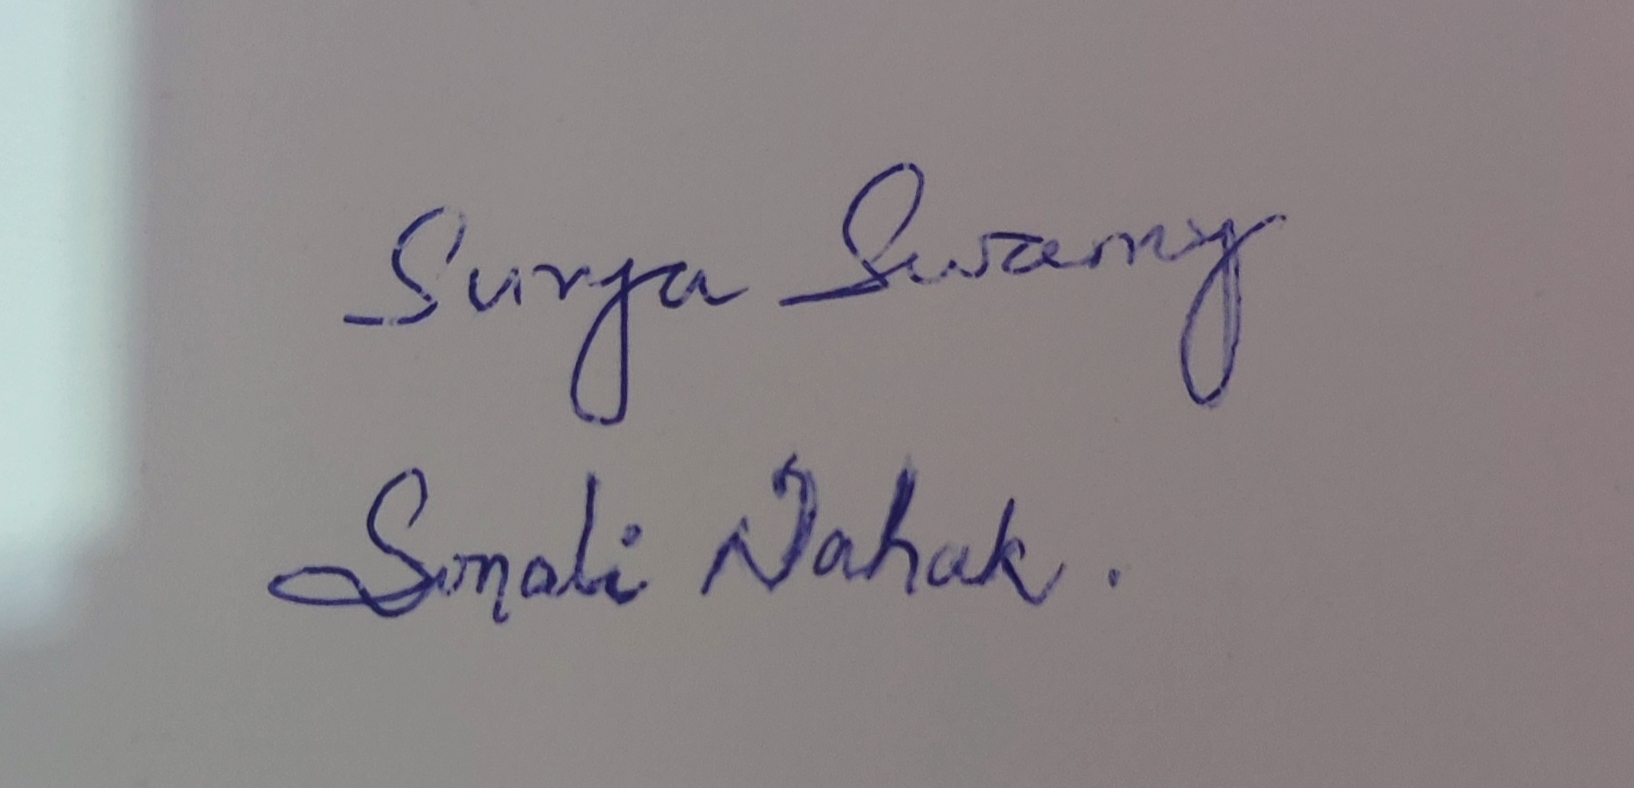 Surya Swamy
Sonali Nahak.